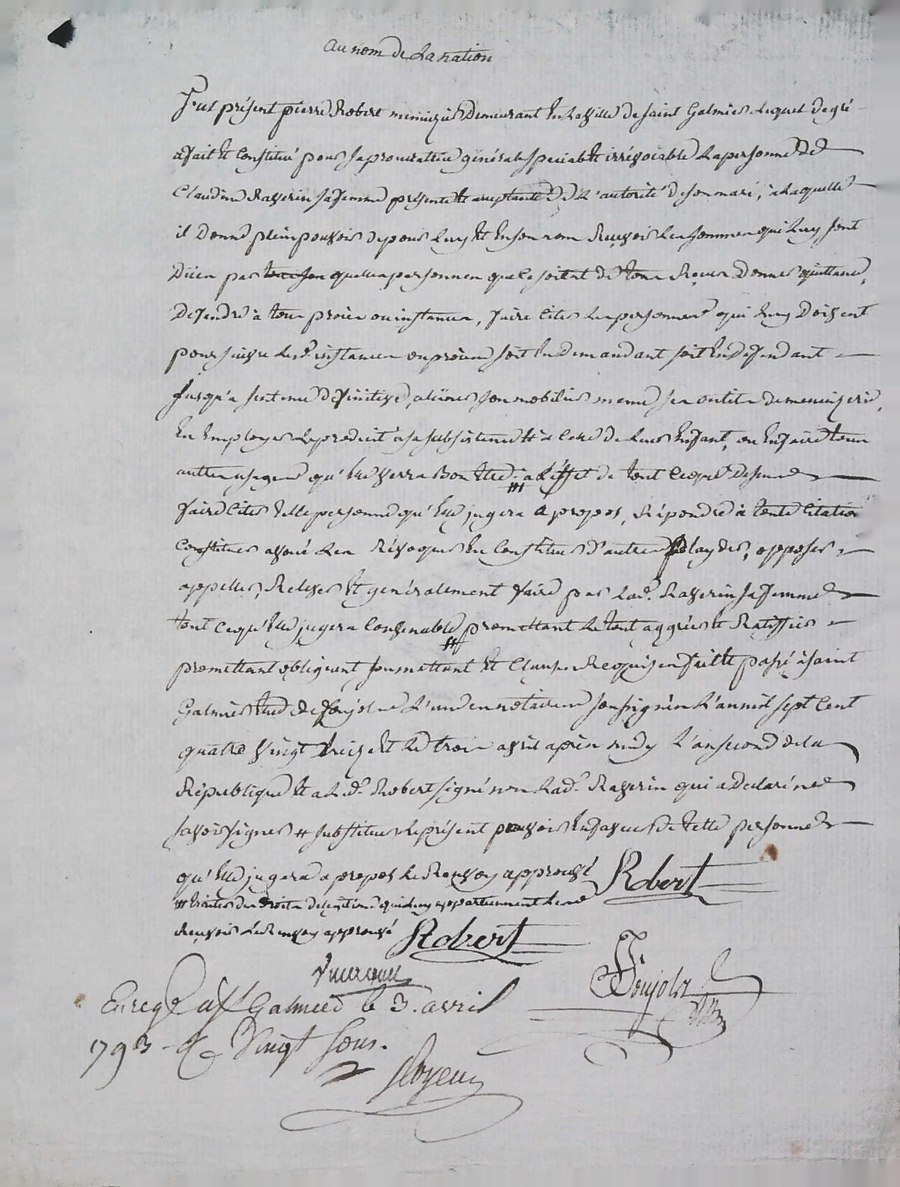 au nom de la nation
Fut présent pierre Robert menuizier demeurant en la ville de saint Galmier lequel de gré
a fait et constitué pour sa procuratrice générale speciable et irrévoiable la personne de
Claudine Raverin sa femme présente et acceptante de l'autorité de son mari, a laquelle
il donne plein pouvoir de pour luy et en son nom Recevoir les sommes qui luy sont
düen par quelques personnes que ce soit et de tout Reçeu donner quittance,
defendre à tous procès ou instances, faire citer les personnes qui luy doivent
poursuivre les d. instances ou procès soit en demandant soit en defendant
jusqu'a sentence définitive, aliéner son mobilier meme ses outils de menuizerie,
En Employer le produit a sa subsistence et a celle de leurs Enfant, ou En faire tous
autres usages qu'elle verra bon etre a l'effet de tout ce que dessus
faire citer telle personne qu'elle jugera apropos, Répondre à toute citation
Constituer avoué les Révoquer En Constituer d'autres playder, opposer,
appeller, Relever et généralement faire par lad. Raverin sa femme
tout ce qu'elle jugera convenable promettant le tout aggréer et Ratiffier
promettant obligeant soumettant et clauses Requises fait et passé à saint
Galmier Etude de Poujolz l'un des notaires soussignés l'an mil sept cent
quatre vingt treize et le trois avril après midy l'an second de la
République et a le d. Robert signé non lad. Raverin qui a declaré ne
savoir signer # substituer le présent pouvoir En faveur de telle personne
qu'elle jugera apropos le Renvoy approuvé Robert
# traiter des droits de qui luy appartiennent
Recevoir le Renvoy approuvé Robert
Poujolz
Enreg. à St Galmier le 3. avril
1793. Vingt sous.